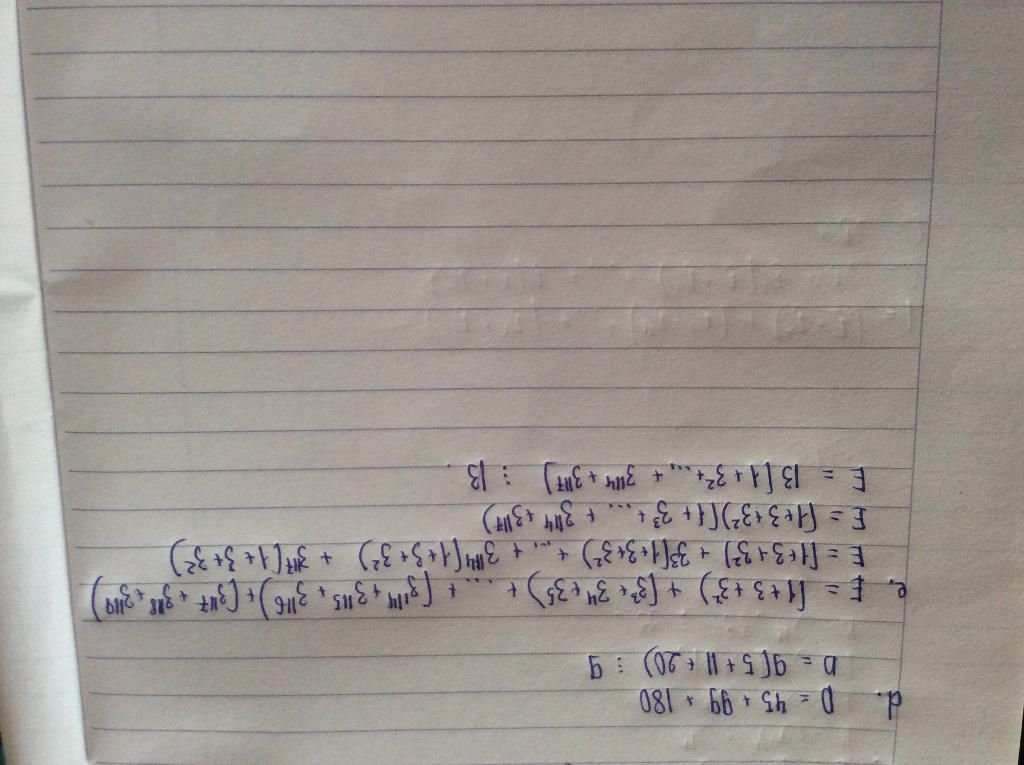 d. D = 45 + 99 + 180
D = 9(5 + 11 + 20) ⋮ 9
e, E = (1+3+3²) + (3³+3⁴+3⁵) + ... + (3¹¹⁴+3¹¹⁵+3¹¹⁶)+(3¹¹⁷+3¹¹⁸+3¹¹⁹)
E = (1+3+3²) + 3³(1+3+3²) + ... + 3¹¹⁴(1+3+3²) + 3¹¹⁷(1+3+3²)
E = (1+3+3²)(1+3³+...+3¹¹⁴+3¹¹⁷)
E = 13(1+3²+...+3¹¹⁴+3¹¹⁷) ⋮ 13.